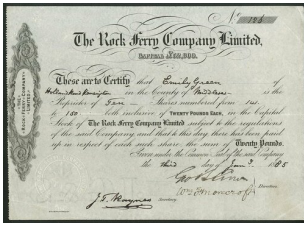 No. 188
The Rock Ferry Company Limited,
CAPITAL £22,500.
These are to Certify that Emily Green of
in the County of Middlesex is the
Proprietor of Ten Shares numbered from 141
to 150 both inclusive of TWENTY POUNDS EACH, in the Capital
Stock of THE ROCK FERRY COMPANY LIMITED subject to the regulations
of the said Company and that to this day there has been paid
up in respect of each such share the sum of Twenty Pounds.
Given under the Common Seal of the said Company
the third day of 1865
Directors.
Secretary.
ROCK FERRY COMPANY
LIMITED